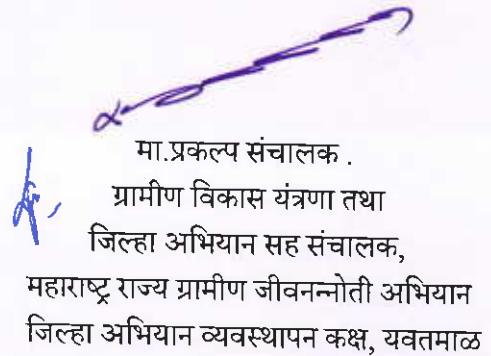 मा.प्रकल्प संचालक .
ग्रामीण विकास यंत्रणा तथा
जिल्हा अभियान सह संचालक,
महाराष्ट्र राज्य ग्रामीण जीवनन्नोती अभियान
जिल्हा अभियान व्यवस्थापन कक्ष, यवतमाळ